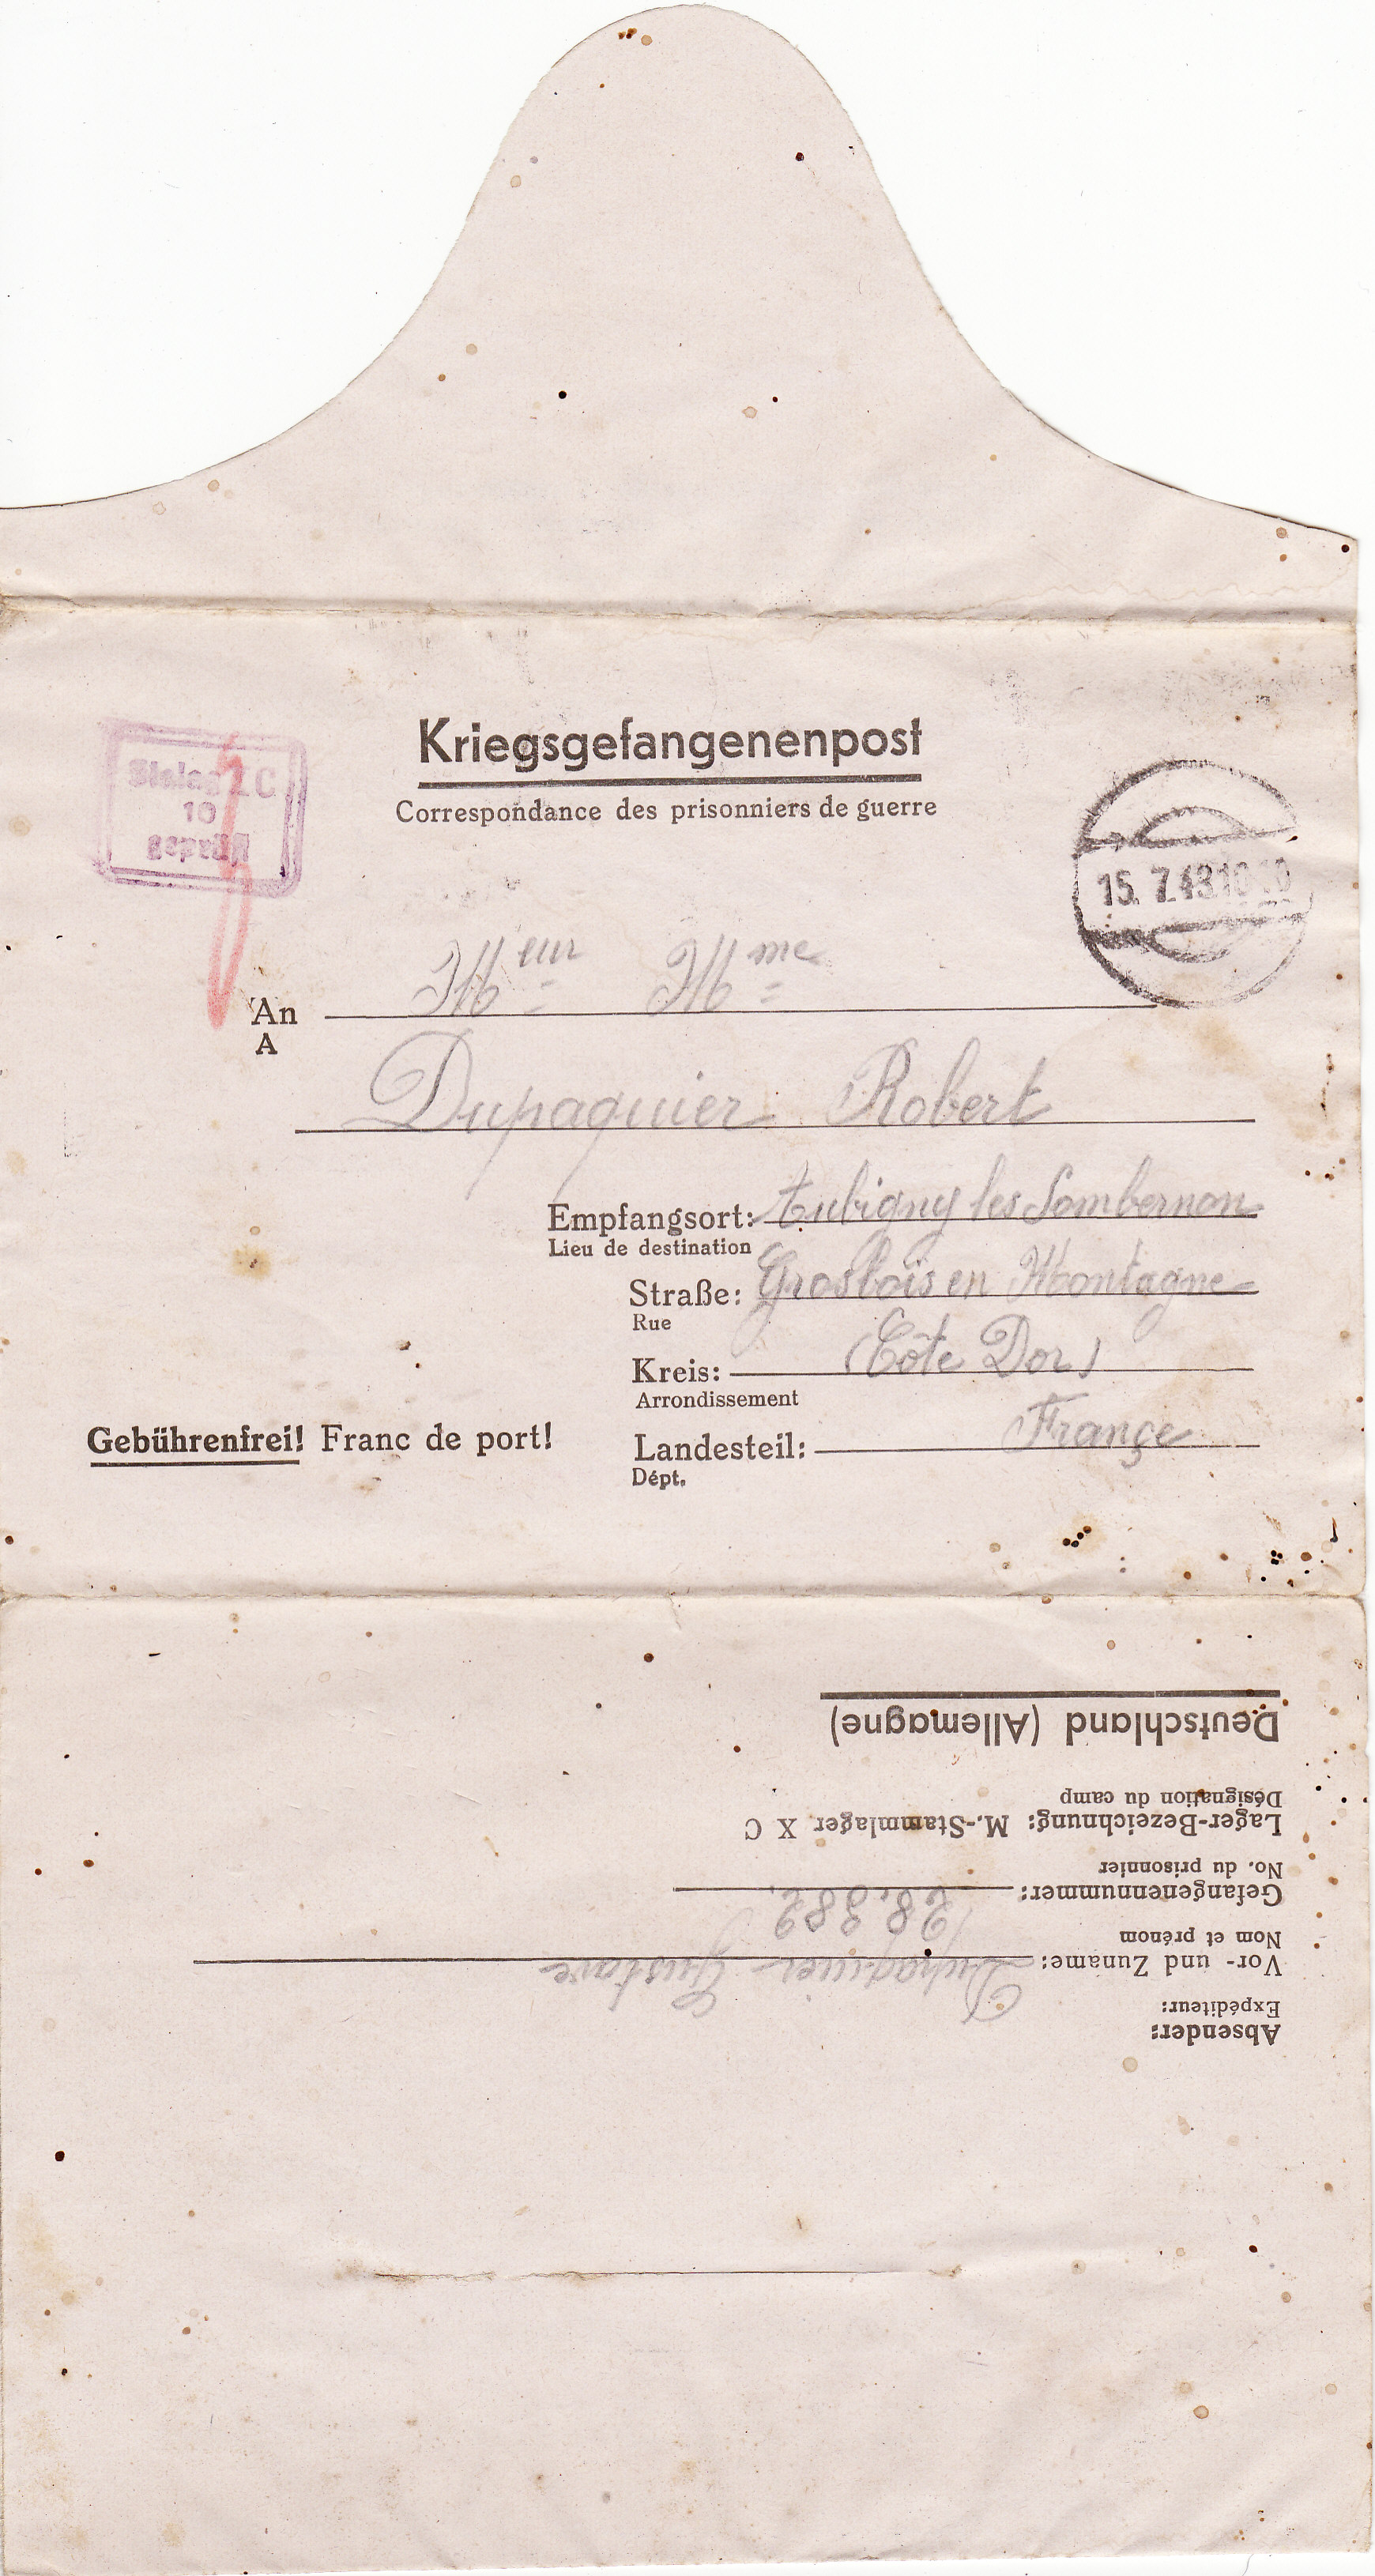 Kriegsgefangenenpost
Correspondance des prisonniers de guerre
Stalag X C
10
geprüft
15. 7.43.10
An Meur Mme
A
Dupaquier Robert
Empfangsort: Aubigny les Sombernon
Lieu de destination
Straße: Grosbois en Montagne
Rue
Kreis: (Côte Dor)
Arrondissement
Gebührenfrei! Franc de port!
Landesteil: Françe
Dépt.
Absender:
Expéditeur:
Vor- und Zuname: Dupaquier Gustave
Nom et prénom
Gefangenennummer: 28.382.
No. du prisonnier
Lager-Bezeichnung: M.-Stammlager X C
Désignation du camp
Deutschland (Allemagne)